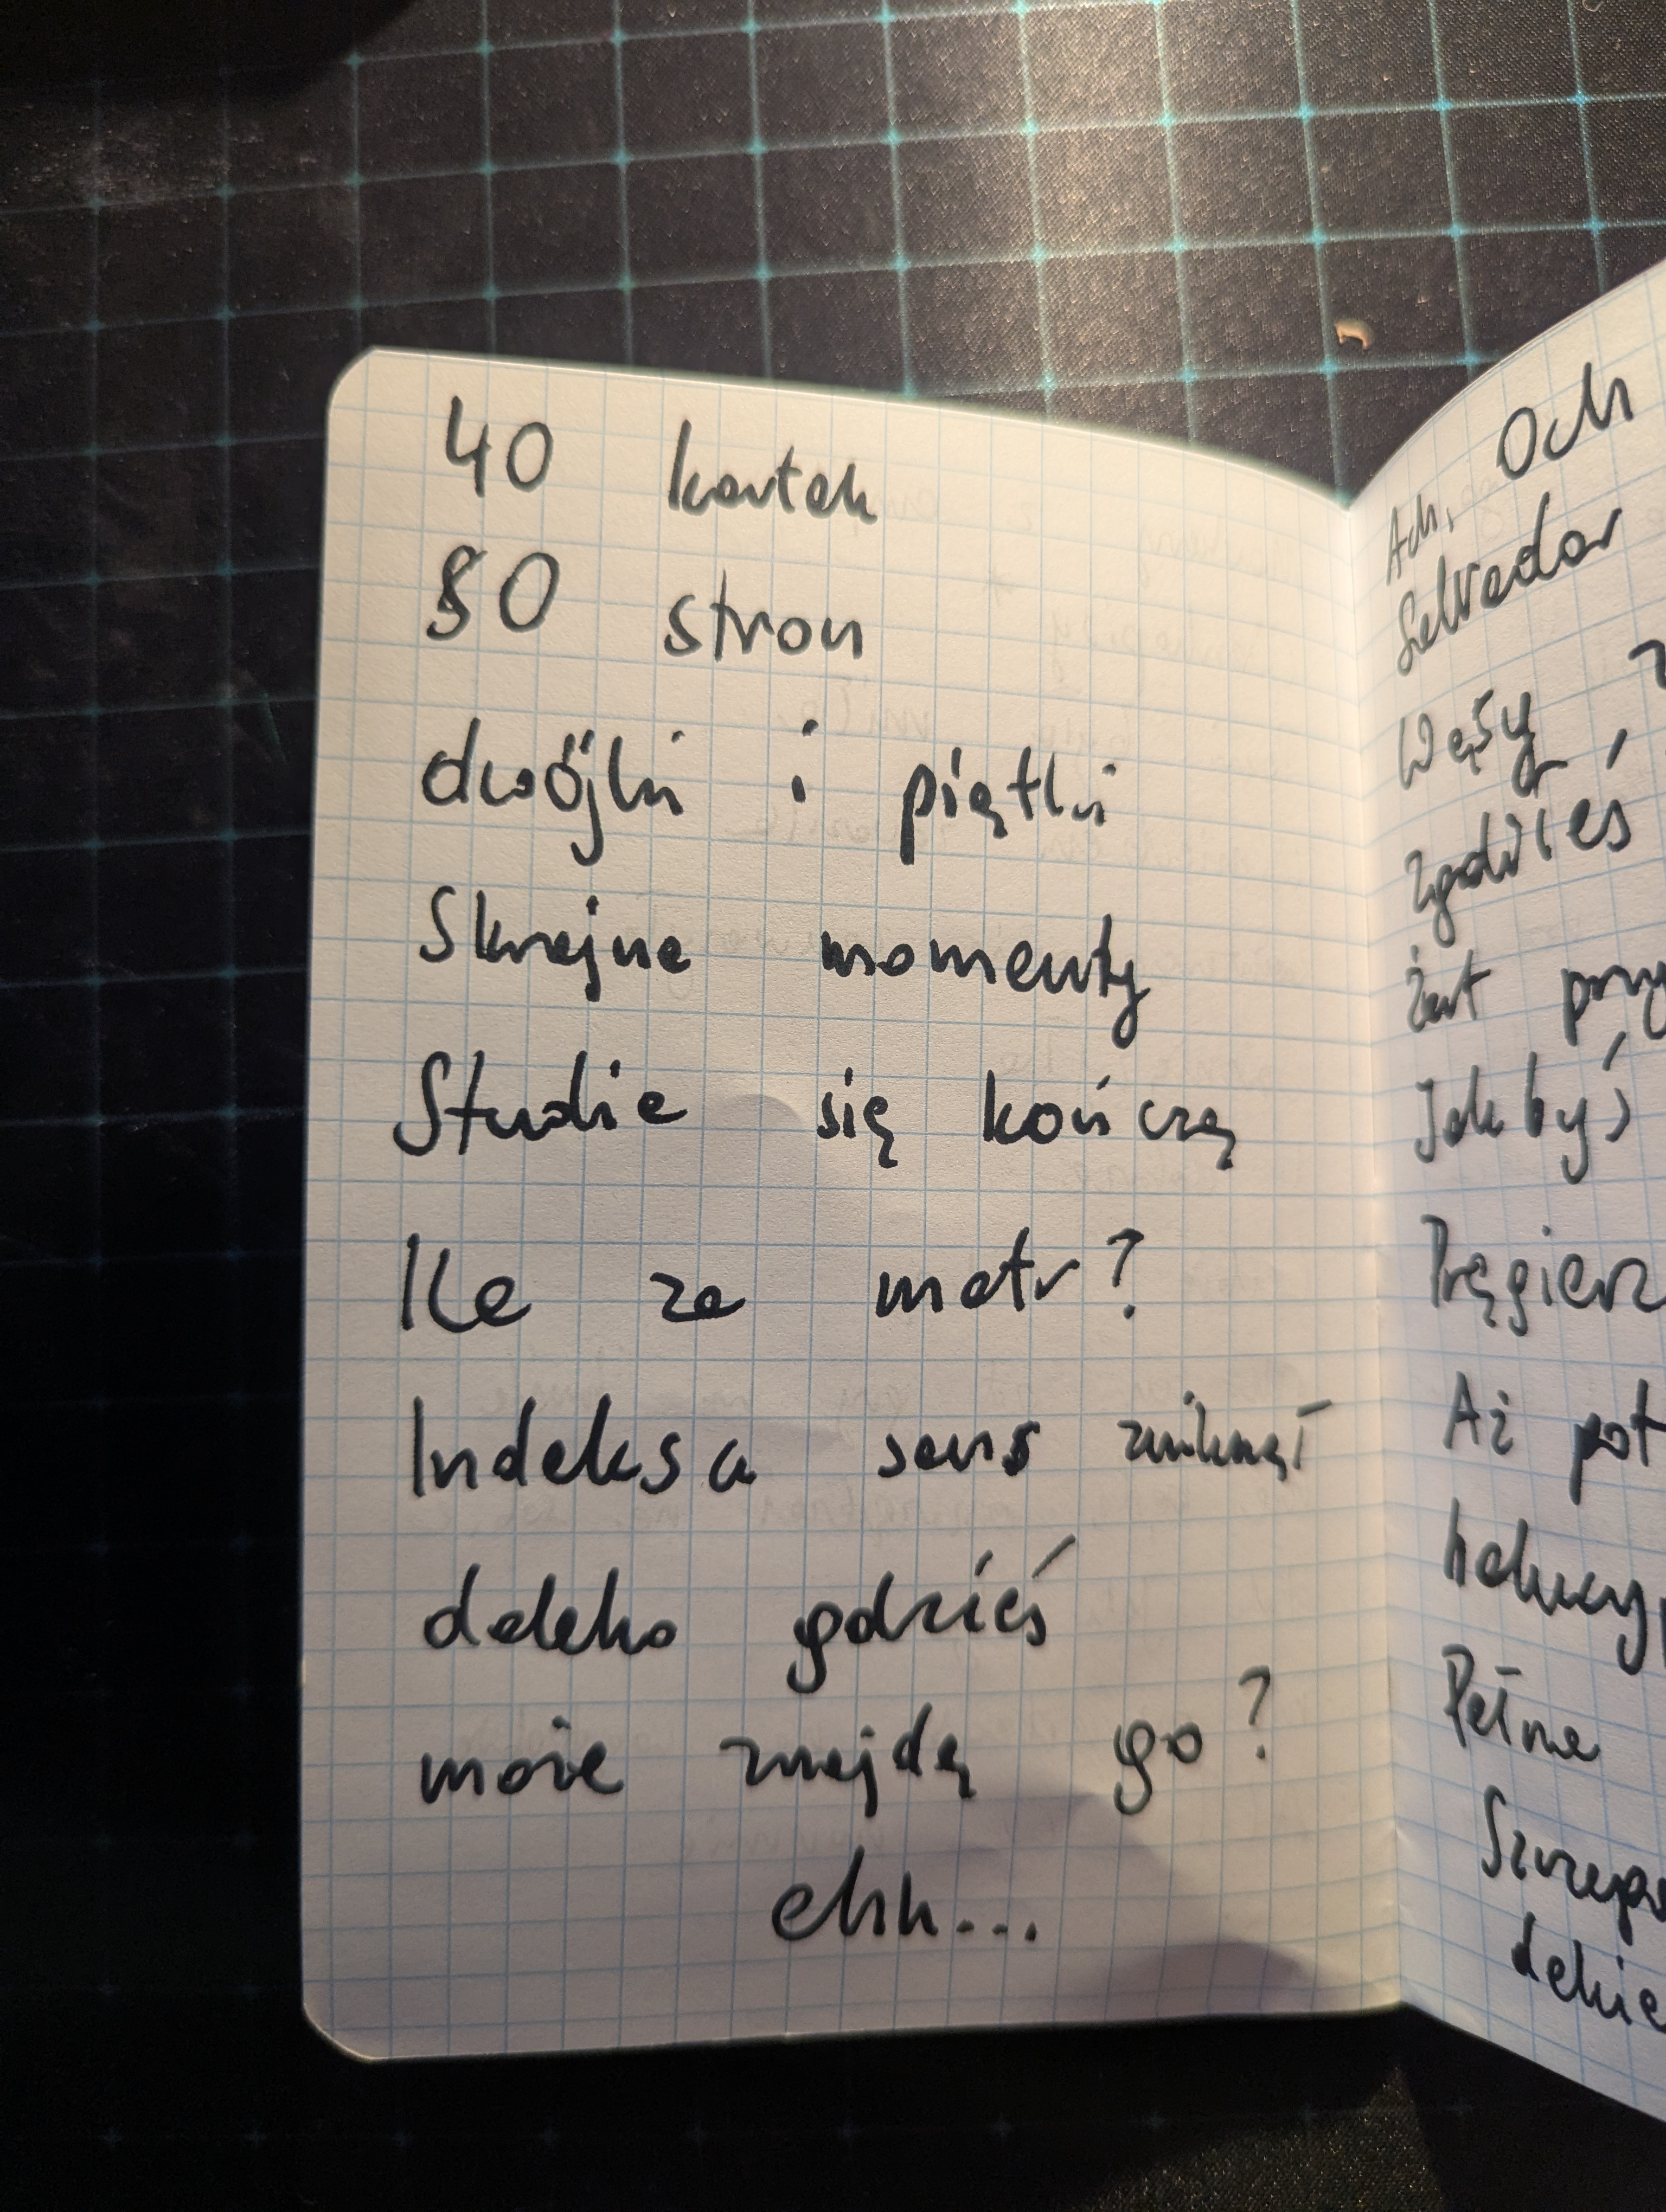 40 kartek
80 stron
dwójki i piątki
Skrajne momenty
Studie się kończą
Ile za metr?
Indeksa sens zniknął
daleko gdzieś
może znajdą go?
ehh...
Och
Ach,
Salvador
Wąsy
zgoliłeś
Żart
Jakbyś
Pręgierz
Aż pot
halucy
Pełne